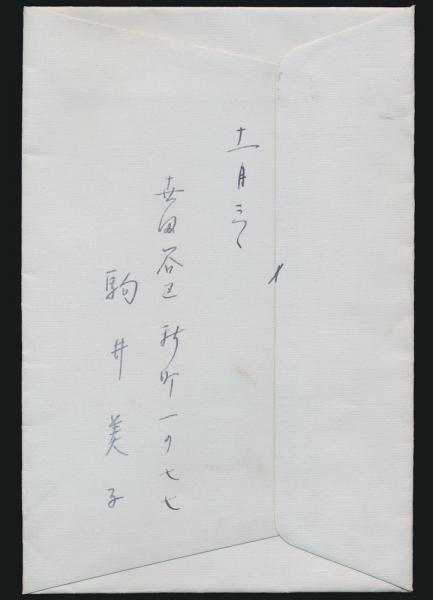 十一月三日
世田谷区新町一ノ七七
駒井美子